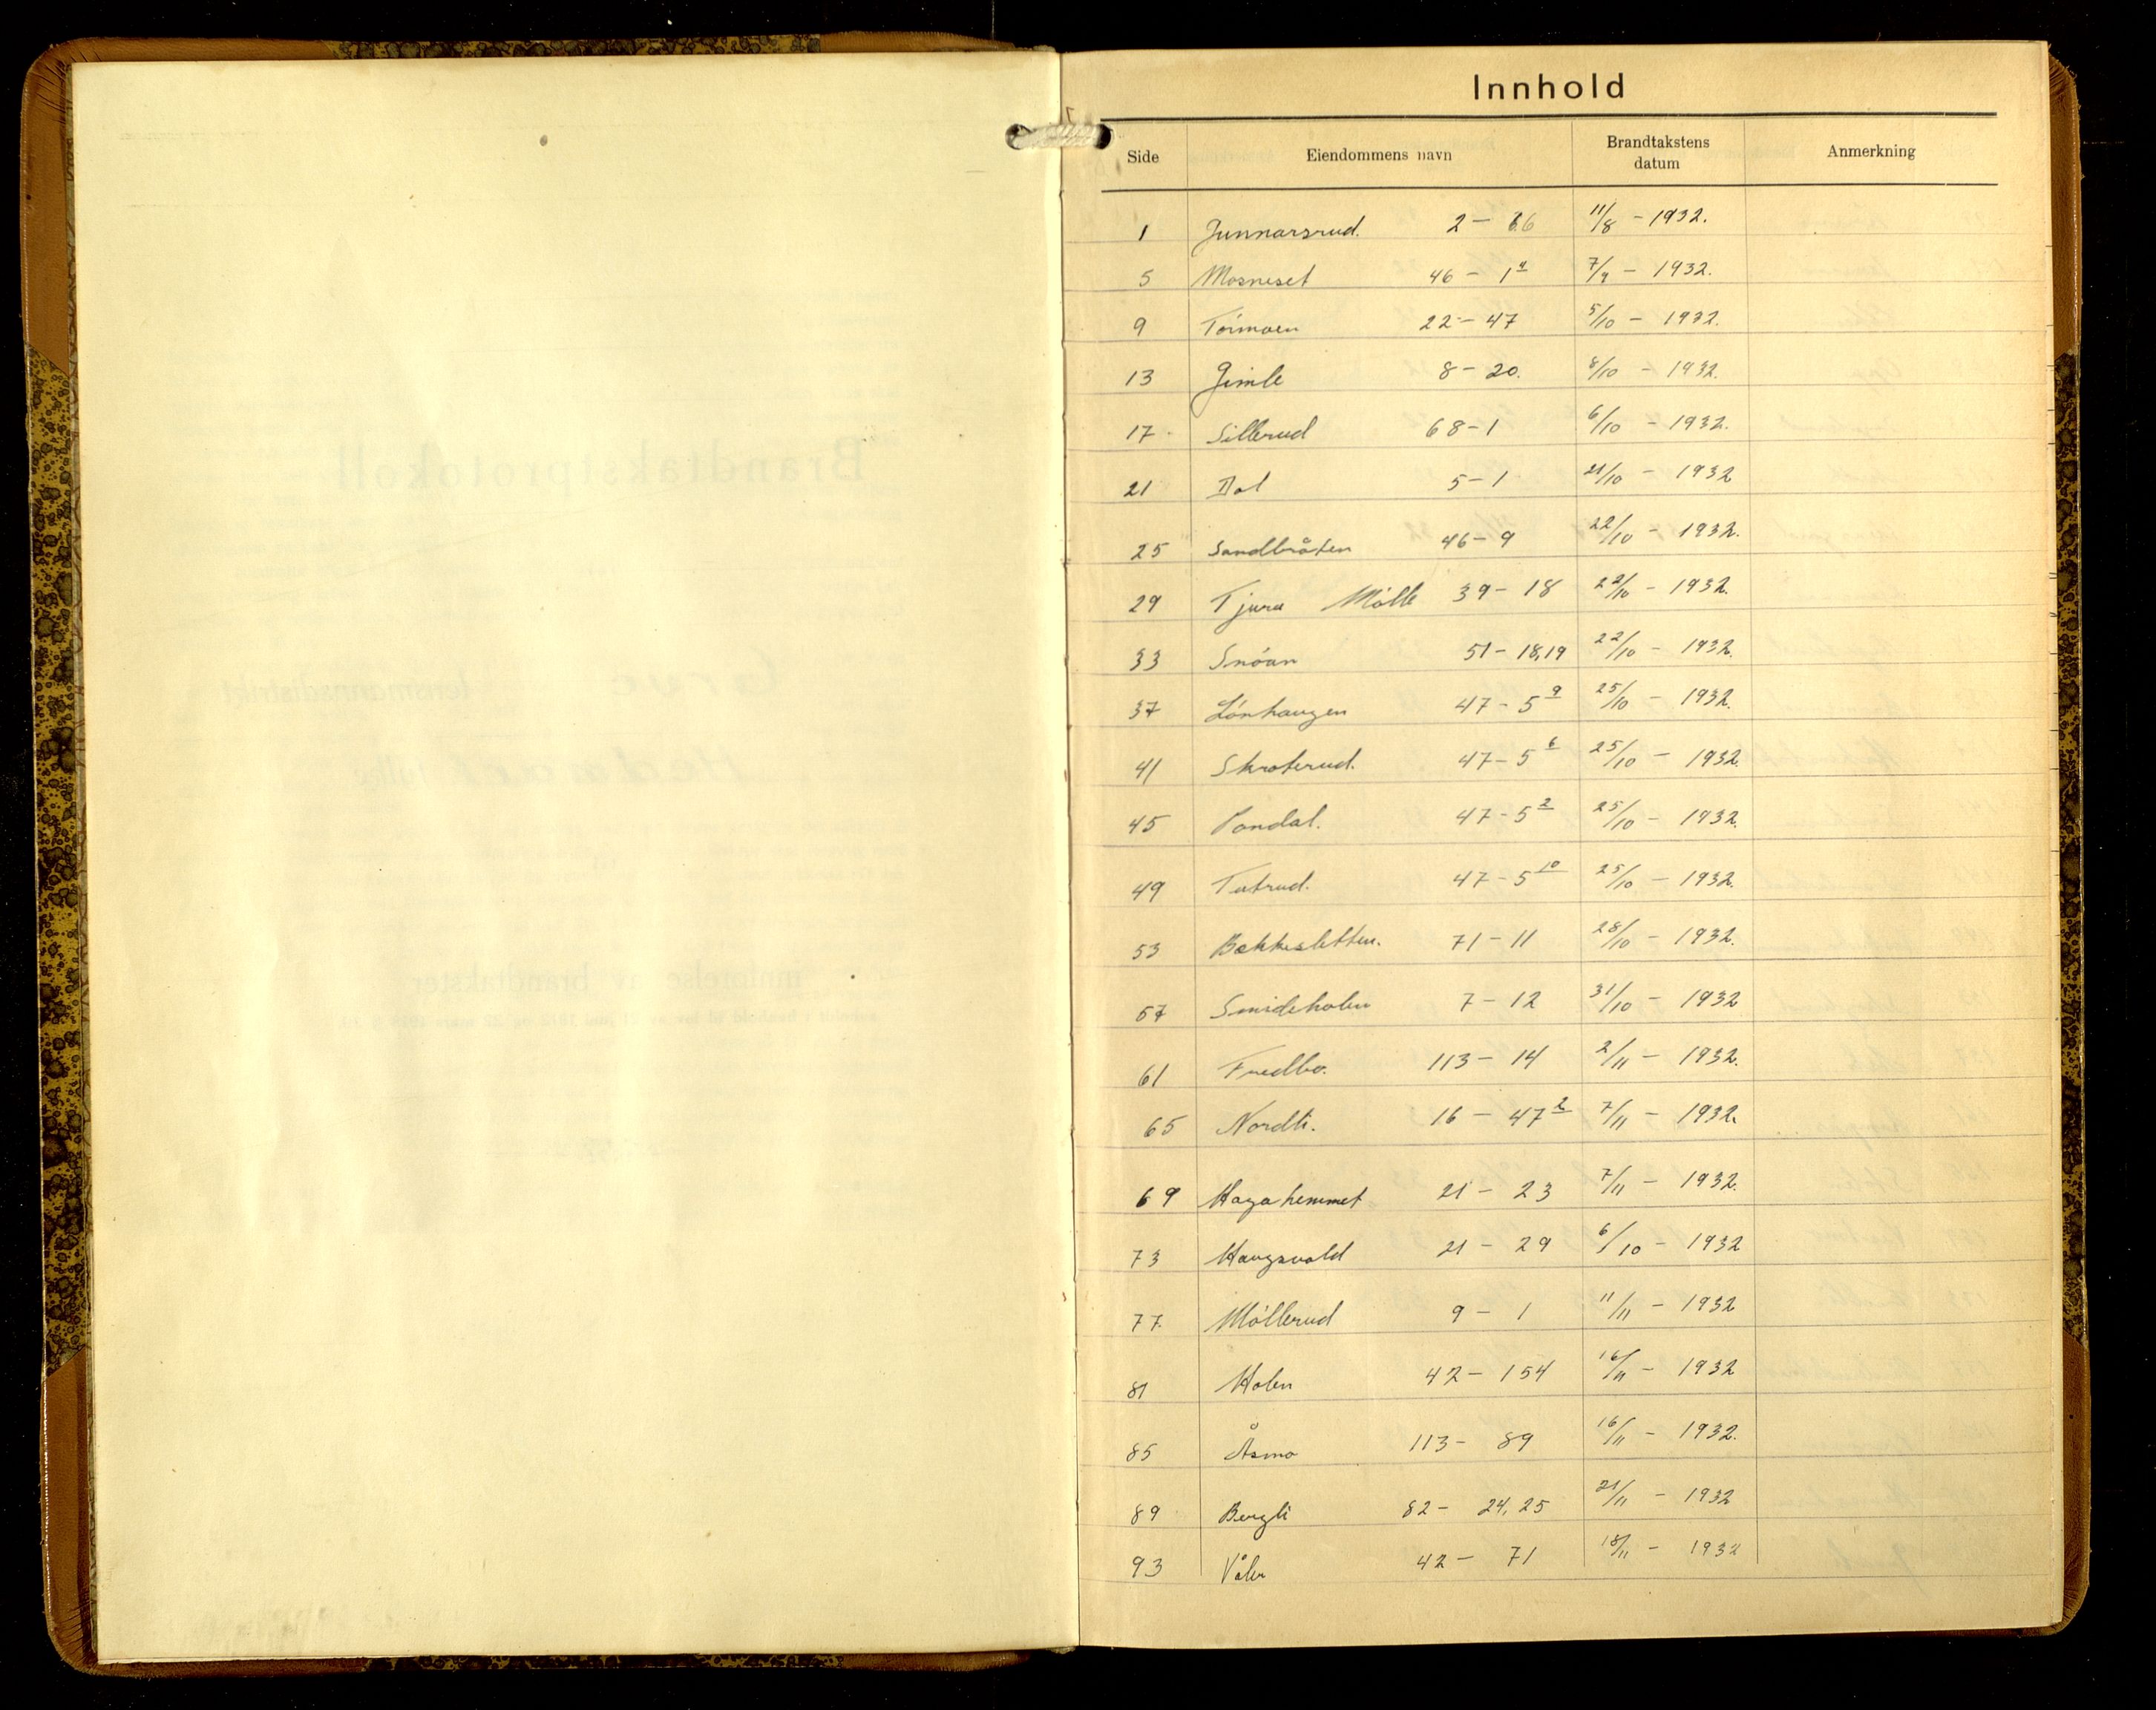 Innhold
Side Eiendommens navn Brandtakstens datum Anmerkning
1 Gunnarsrud. 2 - 66 11/8 - 1932.
5 Mosneset 46 - 1 4 7/9 - 1932.
9 Törmoen 22 - 47 5/10 - 1932.
13 Gimle 8 - 20. 8/10 - 1932.
17 Sillerud 68 - 1 6/10 - 1932.
21 Dal 5 - 1 21/10 - 1932
25 Sandbråten 46 - 9 22/10 - 1932.
29 Tjura Mölle 39 - 18 22/10 - 1932.
33 Snöan 51 - 18,19 22/10 - 1932.
37 Lönhaugen 47 - 5 9 25/10 - 1932.
41 Skroterud. 47 - 5 6 25/10 - 1932.
45 47 - 5 2 25/10 - 1932.
49 Tutrud. 47 - 5 10 25/10 - 1932.
53 Bekkesletten. 71 - 11 28/10 - 1932.
57 Smideholen 7 - 12 31/10 - 1932
61 Fredbo. 113 - 14 2/11 - 1932.
65 Nordli. 16 - 47 2 7/11 - 1932.
69 Hagahemmet 21 - 23 7/11 - 1932.
73 Haugsvold 21 - 29 6/10 - 1932
77 Möllerud 9 - 1 11/11 - 1932
81 Holen 42 - 154 16/11 - 1932
85 Åsmo 113 - 89 16/11 - 1932.
89 Bergli 82 - 24, 25 21/11 - 1932
93 Våler 42 - 71 18/11 - 1932